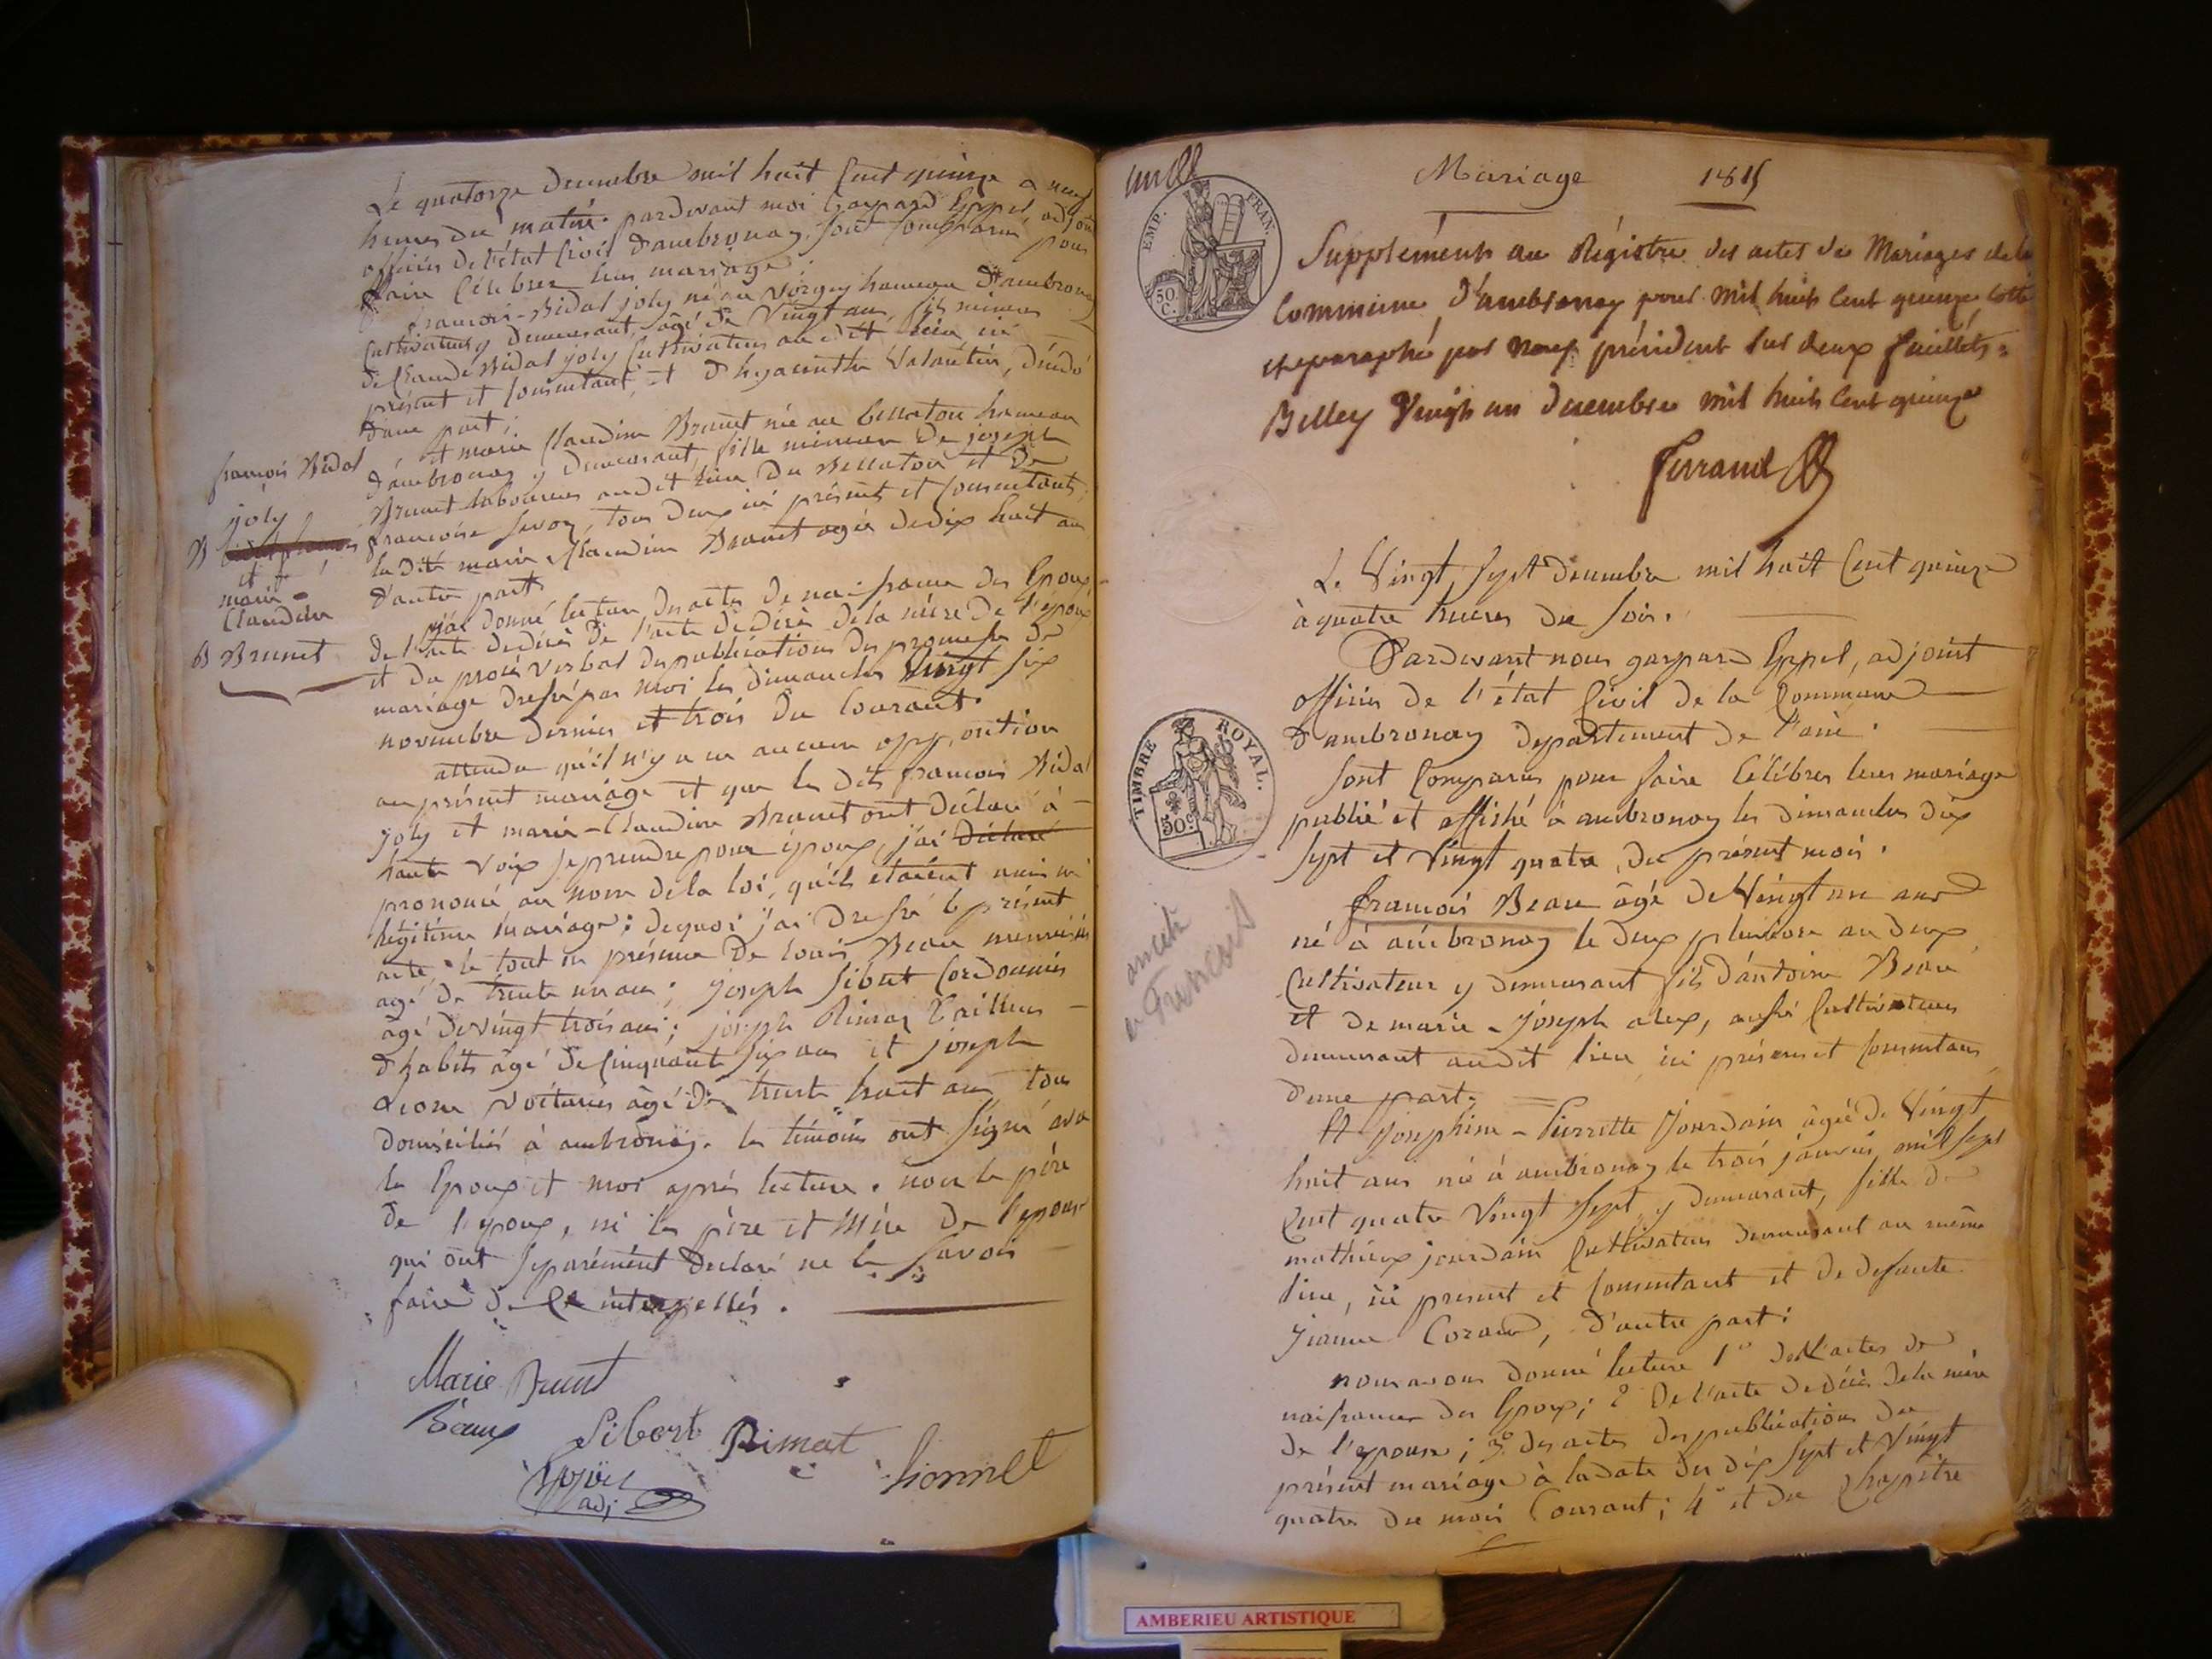 Le quatorze decembre mil huit Cent quinze a neuf
heures du matin. pardevant moi Gaspard Eppel, adjoint
officier de l'état Civil d'ambronay, sont Comparus pour
faire Célébrer leur mariage :
françois-Bidal joly né au vorgey hameau d'ambronay
Cultivateur y demeurant, âgé de Vingt ans, fils mineur
de Claude Bidal joly Cultivateur au dit lieu, ici
présent et Consentant, et d'hyacinthe Valantin, décédé
d'une part ;
et marie Claudine Brunet née au bellaton hameau
d'ambronay y demeurant, fille mineure de joseph
Brunet laboureur au dit lieu du Bellaton et de
françoise savoy, tous deux ici présents et Consentants,
la dite marie Claudine Brunet agée de dix huit ans
d'autre part.
françois Bidal
joly
B
et
marie
Claudine
B Brunet
j'ai donné lecture des actes de naissance des Epoux
de l'acte de décès de la mère de l'époux
et du procès verbal des publications des promesses de
mariage dressé par moi les dimanches Vingt six
novembre dernier et trois du Courant.
attendu qu'il n'y a eu aucune opposition
au présent mariage et que les dits françois Bidal
joly et marie-Claudine Brunet ont déclaré à
haute voix se prendre pour époux, j'ai déclaré
prononcé au nom de la loi, qu'ils étaient unis en
légitime mariage : dequoi j'ai dressé le présent
acte, le tout en présence de louis Beau menuisier
agé de trente un ans ; joseph Sibert Cordonnier
âgé de vingt trois ans ; joseph Rimaz Tailleur
d'habits âgé de Cinquante six ans et joseph
voiturier âgé de trente huit ans tous
domiciliés à ambronay. les témoins ont signé avec
les Epoux et moi après lecture. non le père
de l'époux, ni les père et Mère de l'epouse
qui ont séparément déclaré ne le savoir
faire de ce interpellés.
Marie Brunet
Beaux Sibert Rimat Lionnet
Eppel
adj
Mariage 1815
EMP. FRAN.
50 C.
Supplément au Régistre des actes de Mariages de la
Commune d'ambronay pour mil huit Cent quinze, Cotté
et paraphé par nous président sur deux feuillets.
Belley Vingt un decembre mil huit Cent quinze
ferrand
Le Vingt Sept decembre mil huit Cent quinze
à quatre heures du soir.
Pardevant nous gaspard Eppel, adjoint
officier de l'état Civil de la Commune
d'ambronay departement de l'ain.
sont Comparus pour faire Célébrer leur mariage
publié et affiché à ambronay les dimanches dix
sept et Vingt quatre du présent mois.
TIMBRE ROYAL.
50 C
françois Beau âgé de Vingt un ans
né à ambronay le deux pluviose an deux
Cultivateur y demeurant fils d'antoine Beau
et de marie-joseph alex, aussi Cultivateurs
demeurant audit lieu ici présens et Consentans
d'une part.
Et josephine-Pierrette Jourdain âgée de Vingt
huit ans née à ambronay le trois janvier mil sept
Cent quatre Vingt Sept, y demeurant, fille de
mathieu jourdain Cultivateur demeurant au même
lieu, ici present et Consentant et de defunte
jeanne Corand, d'autre part :
nous avons donné lecture 1° des actes de
naissance des Epoux ; 2° De l'acte de décès de la mère
de l'epouse ; 3° des actes des publications du
présent mariage à la date des dix sept et Vingt
quatre du mois Courant ; 4° et du Chapitre
AMBERIEU ARTISTIQUE